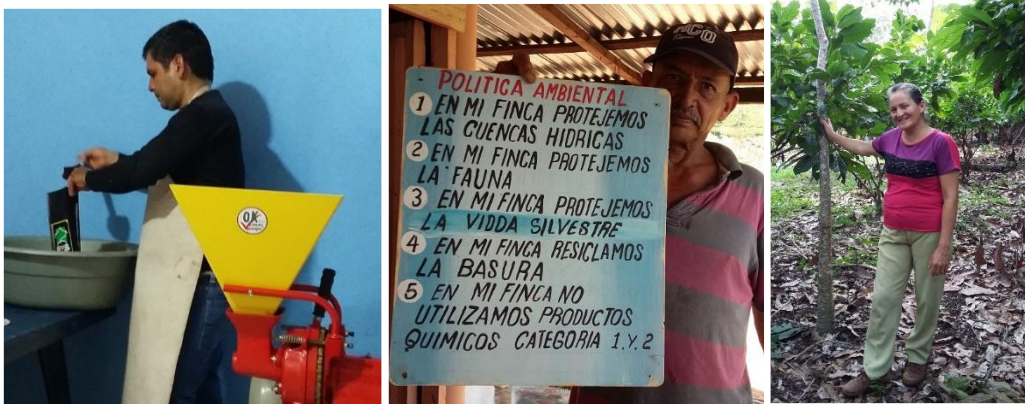 OK
POLITICA AMBIENTAL
1 EN MI FINCA PROTEJEMOS
LAS CUENCAS HIDRICAS
2 EN MI FINCA PROTEJEMOS
LA FAUNA
3 EN MI FINCA PROTEJEMOS
LA VIDDA SILVESTRE
4 EN MI FINCA RESICLAMOS
LA BASURA
5 EN MI FINCA NO
UTILIZAMOS PRODUCTOS
QUIMICOS CATEGORIA 1.Y.2